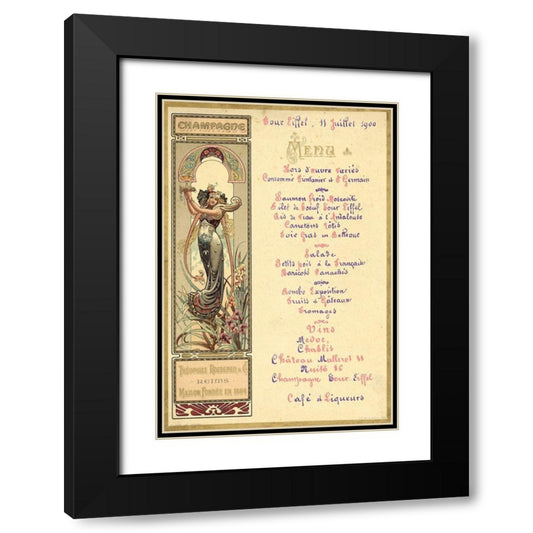 CHAMPAGNE
THÉOPHILE ROEDERER & Cº
REIMS
MAISON FONDÉE EN 1864
Tour Eiffel, 11 Juillet 1900
MENU
Hors d'œuvre variés
Consommé Printanier et St Germain
Saumon froid Moscovite
Filet de Bœuf Tour Eiffel
Ris de Veau à l'Andalouse
Canetons Rôtis
Foie Gras en Bellevue
Salade
Petits pois à la Française
Haricots Panachés
Bombe Exposition
Fruits & Gâteaux
Fromages
Vins
Médoc,
Chablis
Château Malleret
Nuits
Champagne Tour Eiffel
Café & Liqueurs